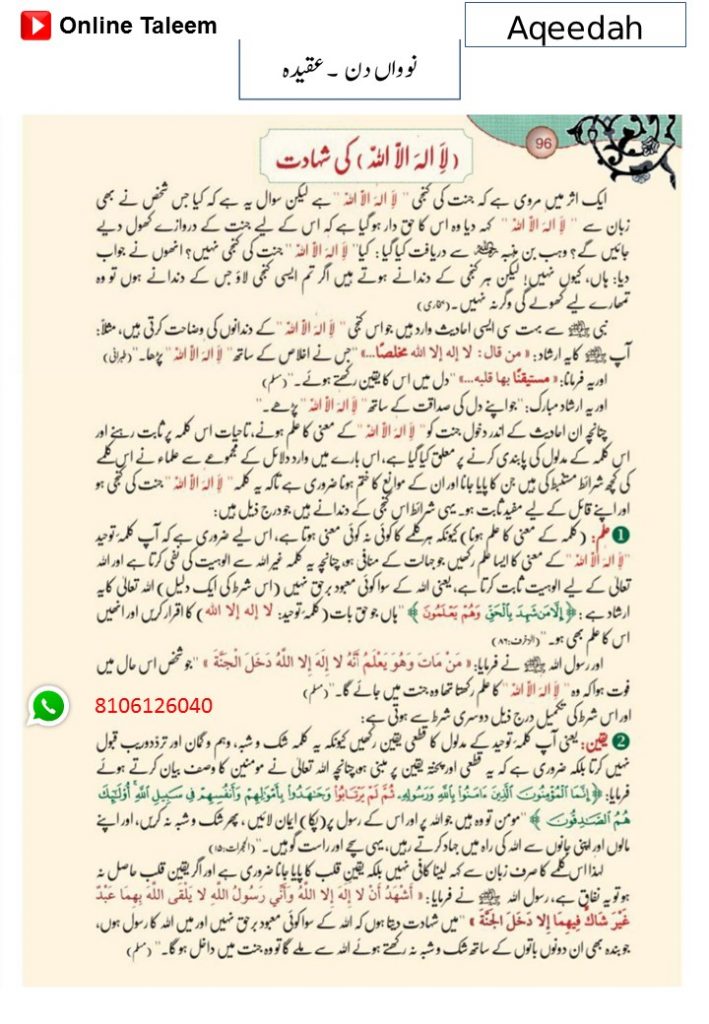 Online Taleem
Aqeedah
نوواں دن ۔ عقیدہ
96
(لَا اِلٰهَ اِلَّا اللّٰهُ) کی شہادت
ایک اثر میں مروی ہے کہ جنت کی کنجی "لَا اِلٰهَ اِلَّا اللّٰهُ" ہے لیکن سوال یہ ہے کہ کیا جس شخص نے بھی
زبان سے "لَا اِلٰهَ اِلَّا اللّٰهُ" کہہ دیا وہ اس کا حق دار ہو گیا ہے کہ اس کے لیے جنت کے دروازے کھول دیے
جائیں گے؟ وہب بن منبہ رحمہ اللہ سے دریافت کیا گیا: کیا "لَا اِلٰهَ اِلَّا اللّٰهُ" جنت کی کنجی نہیں؟ انھوں نے جواب
دیا: ہاں، کیوں نہیں! لیکن ہر کنجی کے دندانے ہوتے ہیں اگر تم ایسی کنجی لاؤ جس کے دندانے ہوں تو وہ
تمھارے لیے کھولے گی وگرنہ نہیں۔ (بخاری)
نبی ﷺ سے بہت سی ایسی احادیث وارد ہیں جو اس کنجی "لَا اِلٰهَ اِلَّا اللّٰهُ" کے دندانوں کی وضاحت کرتی ہیں، مثلاً:
آپ ﷺ کا یہ ارشاد: «من قال: لا إله إلا الله مخلصًا...» "جس نے اخلاص کے ساتھ "لَا اِلٰهَ اِلَّا اللّٰهُ" پڑھا۔" (طبرانی)
اور یہ فرمانا: «مستيقنًا بها قلبه...» "دل میں اس کا یقین رکھتے ہوئے۔" (مسلم)
اور یہ ارشاد مبارک: "جو اپنے دل کی صداقت کے ساتھ "لَا اِلٰهَ اِلَّا اللّٰهُ" پڑھے۔"
چنانچہ ان احادیث کے اندر دخول جنت کو "لَا اِلٰهَ اِلَّا اللّٰهُ" کے معنی کا علم ہونے، تاحیات اس کلمہ پر ثابت رہنے اور
اس کلمہ کے مدلول کی پابندی کرنے پر معلق کیا گیا ہے، اس بارے میں وارد دلائل کے مجموعے سے علماء نے اس کلمے
کی کچھ شرائط مستنبط کی ہیں جن کا پایا جانا اور ان کے موانع کا ختم ہونا ضروری ہے تاکہ یہ کلمہ "لَا اِلٰهَ اِلَّا اللّٰهُ" جنت کی کنجی ہو
اور اپنے قائل کے لیے مفید ثابت ہو۔ یہی شرائط اس کنجی کے دندانے ہیں جو درج ذیل ہیں:
❶ علم: (کلمہ کے معنی کا علم ہونا) کیونکہ ہر کلمے کا کوئی نہ کوئی معنی ہوتا ہے، اس لیے ضروری ہے کہ آپ کلمۂ توحید
"لَا اِلٰهَ اِلَّا اللّٰهُ" کے معنی کا ایسا علم رکھیں جو جہالت کے منافی ہو، چنانچہ یہ کلمہ غیر اللہ سے الوہیت کی نفی کرتا ہے اور اللہ
تعالیٰ کے لیے الوہیت ثابت کرتا ہے، یعنی اللہ کے سوا کوئی معبود برحق نہیں (اس شرط کی ایک دلیل) اللہ تعالیٰ کا یہ
ارشاد ہے: ﴿إِلَّا مَن شَهِدَ بِالْحَقِّ وَهُمْ يَعْلَمُونَ﴾ "ہاں جو حق بات (کلمۂ توحید: لا إله إلا الله) کا اقرار کریں اور انھیں
اس کا علم بھی ہو۔" (الزخرف:۸۶)
اور رسول اللہ ﷺ نے فرمایا: «مَنْ مَاتَ وَهُوَ يَعْلَمُ أَنَّهُ لَا إِلَهَ إِلَّا اللَّهُ دَخَلَ الْجَنَّةَ» "جو شخص اس حال میں
فوت ہوا کہ وہ "لَا اِلٰهَ اِلَّا اللّٰهُ" کا علم رکھتا تھا وہ جنت میں جائے گا۔" (مسلم)
8106126040
اور اس شرط کی تکمیل درج ذیل دوسری شرط سے ہوتی ہے:
❷ یقین: یعنی آپ کلمۂ توحید کے مدلول کا قطعی یقین رکھیں کیونکہ یہ کلمہ شک و شبہ، وہم و گمان اور تردّد و ریب قبول
نہیں کرتا بلکہ ضروری ہے کہ یہ قطعی اور پختہ یقین پر مبنی ہو چنانچہ اللہ تعالیٰ نے مومنین کا وصف بیان کرتے ہوئے
فرمایا: ﴿إِنَّمَا الْمُؤْمِنُونَ الَّذِينَ ءَامَنُوا بِاللَّهِ وَرَسُولِهِ ثُمَّ لَمْ يَرْتَابُوا وَجَاهَدُوا بِأَمْوَالِهِمْ وَأَنفُسِهِمْ فِي سَبِيلِ اللَّهِ أُولَٰئِكَ
هُمُ الصَّادِقُونَ﴾ "مومن تو وہ ہیں جو اللہ پر اور اس کے رسول پر (پکا) ایمان لائیں، پھر شک و شبہ نہ کریں، اور اپنے
مالوں اور اپنی جانوں سے اللہ کی راہ میں جہاد کرتے رہیں، یہی سچے اور راست گو ہیں۔" (الحجرات:۱۵)
لہٰذا اس کلمے کا صرف زبان سے کہہ لینا کافی نہیں بلکہ یقین قلب کا پایا جانا ضروری ہے اور اگر یقین قلب حاصل نہ
ہو تو یہ نفاق ہے، رسول اللہ ﷺ نے فرمایا: «أَشْهَدُ أَنْ لَا إِلَهَ إِلَّا اللَّهُ وَأَنِّي رَسُولُ اللَّهِ لَا يَلْقَى اللَّهَ بِهِمَا عَبْدٌ
غَيْرَ شَاكٍّ فِيهِمَا إِلَّا دَخَلَ الْجَنَّةَ» "میں شہادت دیتا ہوں کہ اللہ کے سوا کوئی معبود برحق نہیں اور میں اللہ کا رسول ہوں،
جو بندہ بھی ان دونوں باتوں کے ساتھ شک و شبہ نہ رکھتے ہوئے اللہ سے ملے گا تو وہ جنت میں داخل ہو گا۔" (مسلم)